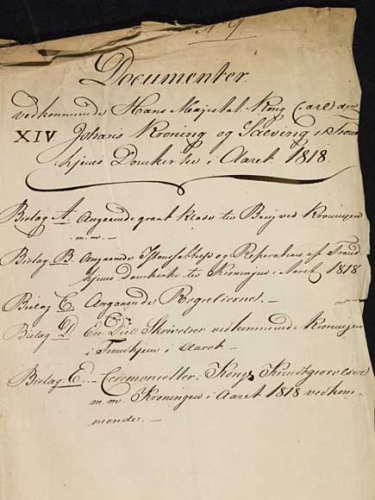 No 9
Documenter
vedkommende Hans Majestæt Kong Carl den
XIV Johans Kroning og Salving i Trond
hjems Domkirke i Aaret 1818.
Bielag A. Angaaende
ved Kroningen
m. m. —
Bielag B Angaaende Istandsættelse og Reparation af Trond
hjems Domkirke til Kroningen i Aaret 1818
Bielag C. Angaaende Regalierne. —
Bielag D En Deel Skrivelser vedkommende Kroningen
i Trondhjem i Aaret. —
Bielag E. — Ceremonieller, Kongl. Kundgjørelser
m. m. Kroningen i Aaret 1818 vedkom-
mende. —